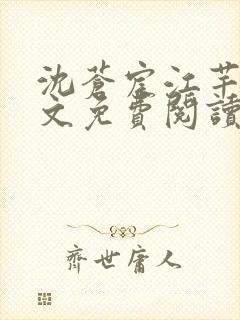 沈蒼宦江芊
文免費閱讀
齊世庸人